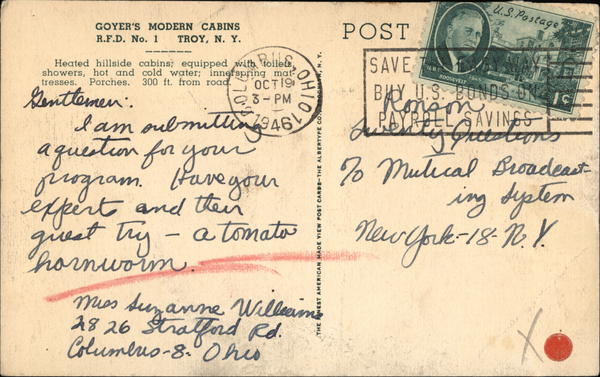 GOYER'S MODERN CABINS
R.F.D. No. 1 TROY, N. Y.
Heated hillside cabins; equipped with toilets,
showers, hot and cold water; innerspring mat-
tresses. Porches. 300 ft. from road.
Gentlemen:
I am submitting
a question for your
program. Have your
experts and their
guest try – a tomato
hornworm.
Miss Suzanne Williams
2826 Stratford Rd.
Columbus-8-Ohio
THE FINEST AMERICAN MADE VIEW POST CARDS—THE ALBERTYPE CO., BROOKLYN, N. Y.
COLUMBUS, OHIO
OCT 19
3-PM
1946
POST
U.S. Postage
ROOSEVELT
1¢
SAVE EASY WAY
BUY U.S. BONDS ON
PAYROLL SAVINGS
Ronson
Twenty Questions
% Mutical Broadcast-
ing System
New York-18-N.Y.
X